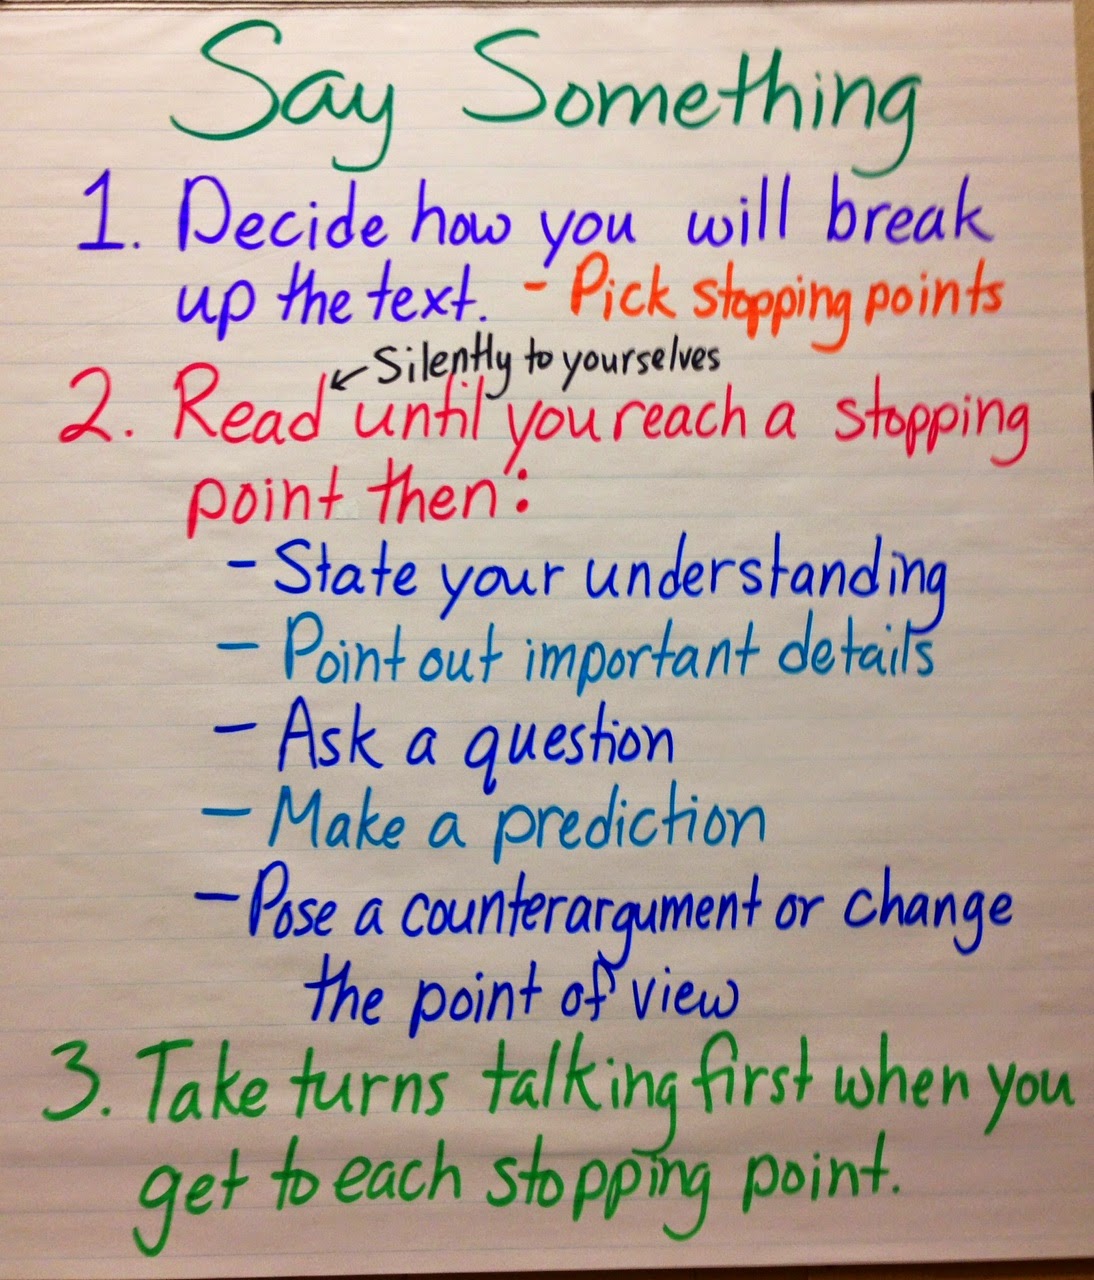 Say Something
1. Decide how you will break
up the text. - Pick stopping points
Silently to yourselves
2. Read until you reach a stopping
point then:
- State your understanding
- Point out important details
- Ask a question
- Make a prediction
- Pose a counterargument or change
the point of view
3. Take turns talking first when you
get to each stopping point.